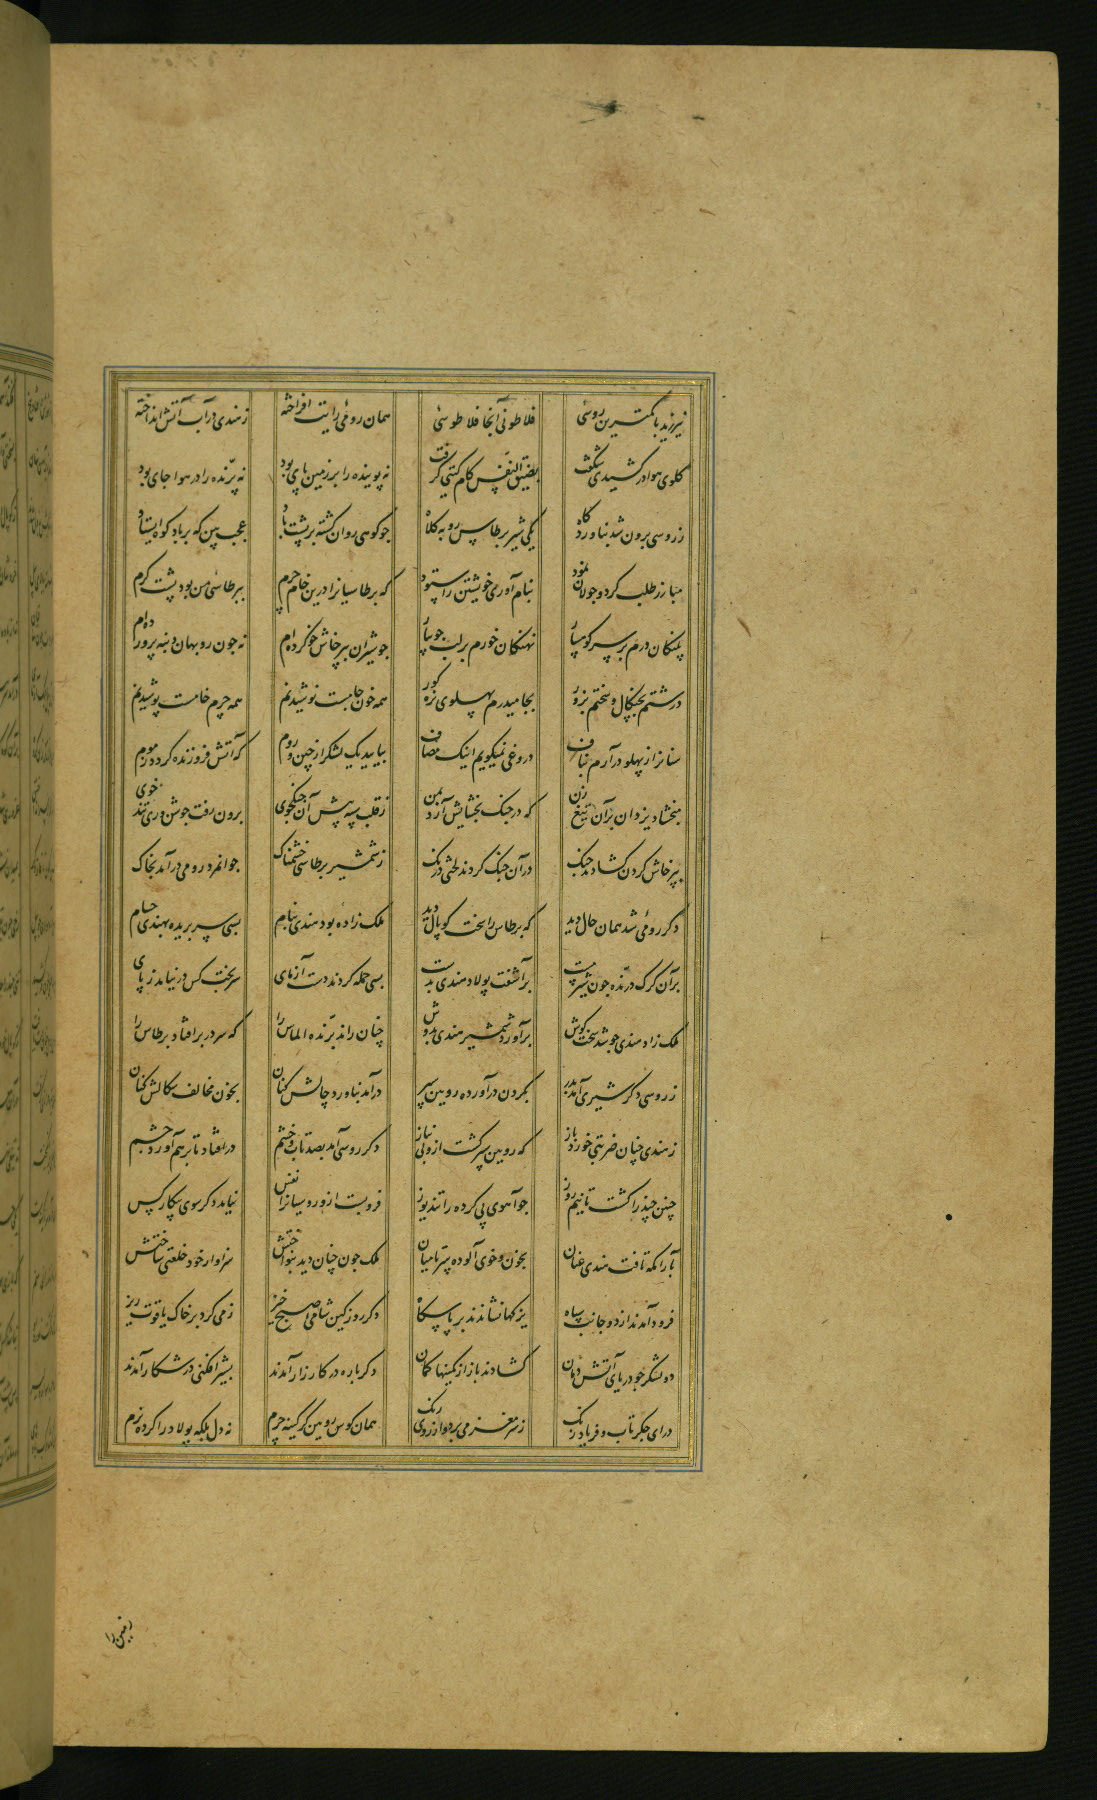 نیرزید با کمترین روسئی فلاطونی آنجا فلاطوسئی همان رومئی رایت افراخته ز هندی در آب آتش انداخته
کلوی هوا در کشیدی شکفت بضیق النفس کام کیتی کرفت نه پوینده را بر زمین پای بود نه پرّنده را در هوا جای بود
ز روسی برون شد بناوردکاه یکی شیر برطاس روبه کلاه جو کوهی روان کشته بر پشت باد عجب بین که بر باد کوه ایستاد
مبارز طلب کرد و جولان نمود بنام آوری خویشتن را ستود که برطاسیانرا درین خام چرم ببرطاسئ من بود پشت کرم
پلنکان درم بر سر کوهسار نهنکان خورم بر لب جویبار جو شیران بپرخاش خو کرده ام نه جون روبهان دنبه پرورده ام
درشتم بچنکال و سختم بزور بخامیدرم پهلوی نره کور همه خون خامست نوشیدنم همه چرم خامست پوشیدنم
سنانرا ز پهلو در آرم بناف دروغی نمیکویم اینک مصاف بیایید یک لشکر از چین و روم که آتش فروزنده کردد ز موم
مبخشاد یزدان بر آن تیغ زن که در جنک بخشایش آرد بمن ز قلب سپه پیش آن جنکجوی برون رفت جوشن وری تند خوی
بپرخاش کردن کشادند جنک در آن جنک کردند لختی درنک ز شمشیر برطاسی خشمناک جوانمرد رومی درآمد بخاک
دکر رومئی شد همان حال دید که برطاس را بخت کوپال دید ملک زاده بود هندی بنام بسی سر بریده بهندی حسام
بر آن کرک درنّده جون شیر مست برآشفت پولاد هندی بدست بسی حمله کردند دست آزمای سر بخت کس در نیامد ز پای
ملک زاد هندی جو شد سخت کوش برآورد شمشیر هندی بدوش چنان راند برّنده الماس را که سر در بر افتاد برطاس را
ز روسی دکر شیری آمد بدر بکردن درآورده رویین سپر درآمد بناورد چالش کنان بخون مخالف سکالش کنان
ز هندی چنان ضربتی خورد باز که رویین سپر کشت ازو بی نیاز دکر روسی آمد بصد تاب و خشم در افتاد تا بر هم آورد جشم
چنین چند را کشت تا نیم روز جو آهوی پی کرده را تند یوز فروبست ازو روسیانرا نفس نیامد دکر سوی پیکار کس
بآرامکه تافت هندی عنان بخون و خوی آلوده سر تا میان ملک جون چنان دید بنواختش سزاوار خود خلعتی ساختش
فرود آمدند از دو جانب سپاه یزکها نشاندند بر پاسکاه دکر روز کین شامی صبح خیز زمی کرد بر خاک یاقوت ریز
دو لشکر جو دریای آتش دمان کشادند باز از کمینها کمان دکرباره در کارزار آمدند بشیر افکنی در شکار آمدند
درای جکرتاب و فریاد زنک ز سر مغز می برد و از روی رنک همان کوس رویین کرکینه چرم نه دل بلکه پولاد را کرده نرم
زمین را